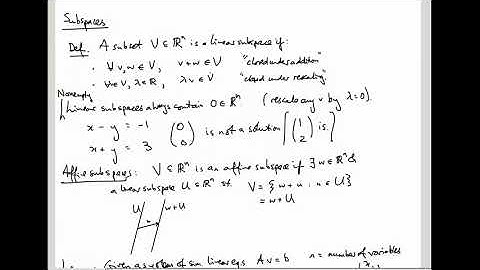 Subspaces
Def. A subset V ⊆ ℝⁿ is a linear subspace if:
· ∀ v, w ∈ V, v+w ∈ V "closed under addition"
· ∀ v ∈ V, λ ∈ ℝ, λv ∈ V "closed under rescaling"
Nonempty
linear subspaces always contain 0 ∈ ℝⁿ (rescale any v by λ=0).
x − y = −1
x + y = 3
(0 0) is not a solution [(1 2) is.]
Affine subspaces: V ⊆ ℝⁿ is an affine subspace if ∃ w ∈ ℝⁿ &
a linear subspace U ⊆ ℝⁿ st. V = {w+u : u ∈ U}
= w+U
U w+U
Given a system of sim. linear eqs. Av=b n = number of variables